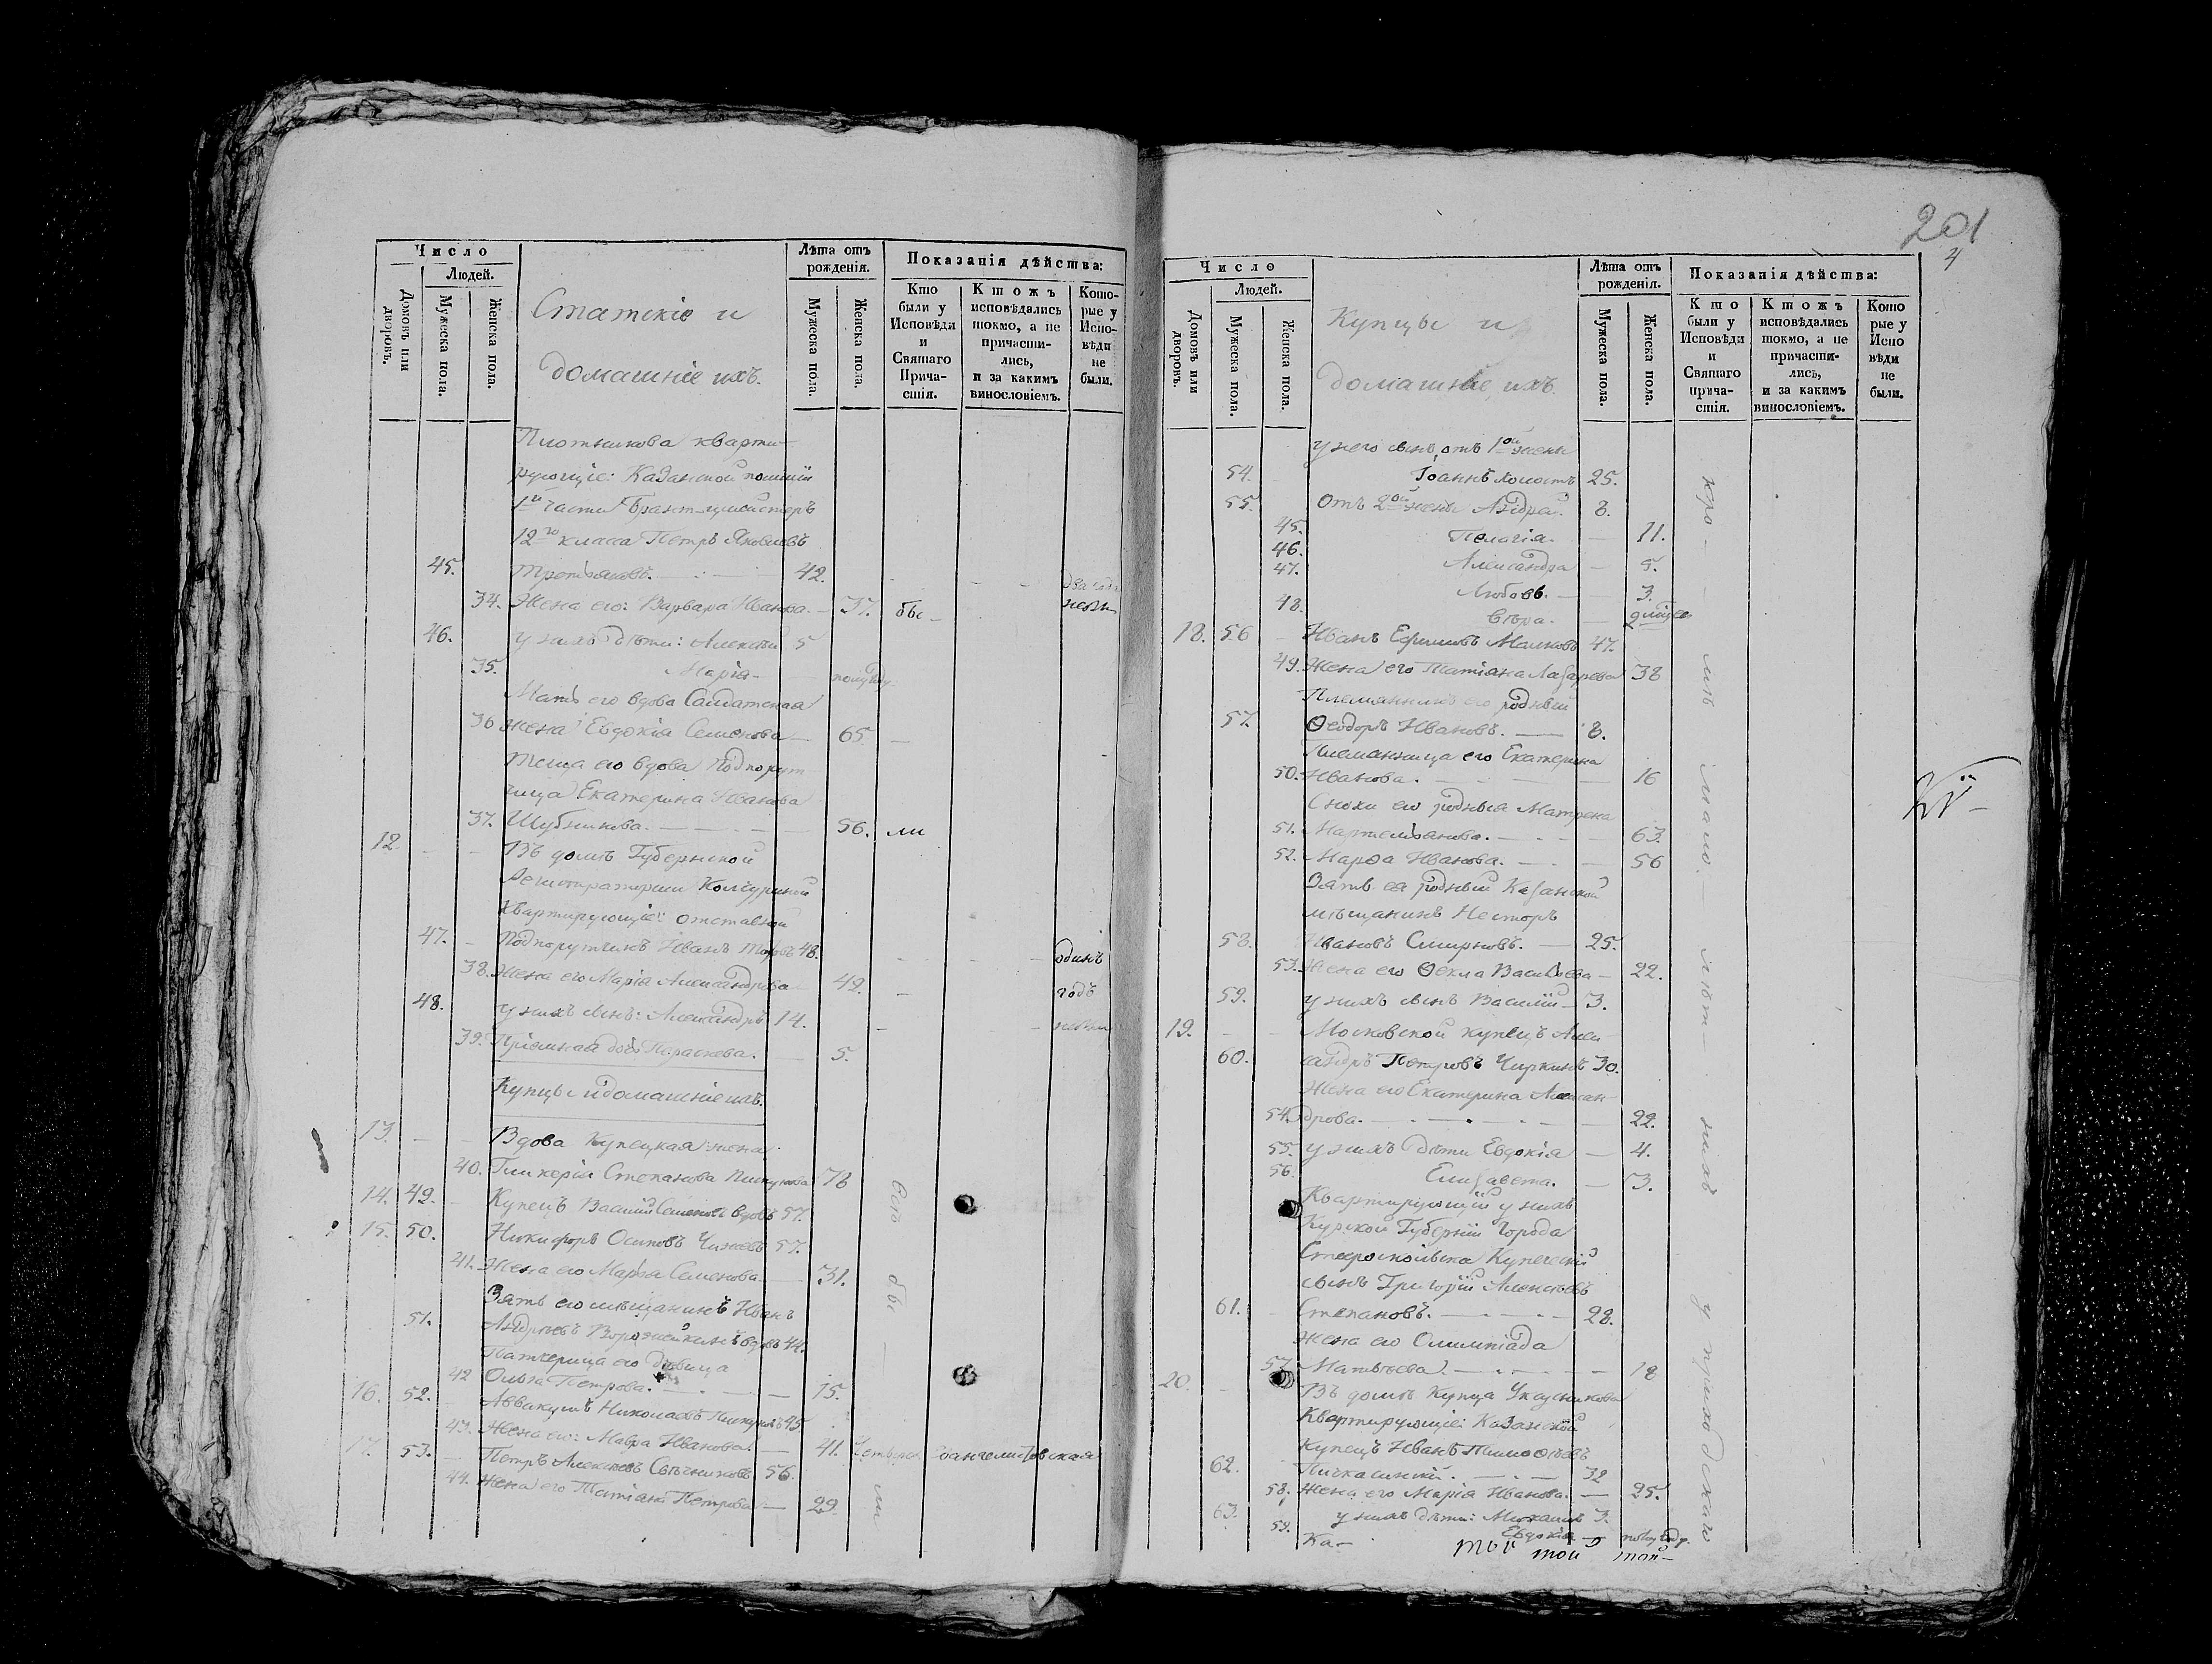 Число
Людей.
Домовъ или дворовъ.
Мужеска пола.
Женска пола.
Статскіе и
домашніе ихъ.
Лѣта отъ рожденія.
Мужеска пола.
Женска пола.
Показанія дѣйства:
Кто были у Исповѣди и Святаго Причастія.
Ктожъ исповѣдались токмо, а не причастились, и за какимъ винословіемъ.
Которые у Исповѣди не были.
Плотникова кварти-
рующіе: Казанской полиціи
1й части Брант-мейстеръ
12го класса Петръ Яковлевъ
45. Третьяковъ. 42.
34. Жена его: Варвара Иванова. 37. бы-
46. у нихъ дѣти: Алексѣй 5
35. Марія- полугоду
Мать его вдова Салдатская
36 жена Евдокія Семенова 65
Теща его вдова Подпорут
чица Екатерина Иванова
37. Шубникова. 56. ли
12. Въ домѣ Губернской
Регистраторши
квартирующіе: отставной
47. Подпорутчикъ Иванъ 48. одинъ
38. Жена его Марія Александрова 42. годъ
48. у нихъ сынъ: Александръ 14.
39. Пріемная дочь Параскева. 5.
Купцы и домашніе ихъ.
13. Вдова Купецкая жена
40. Гликерія Степанова 78
14. 49. Купецъ Василій Семеновъ вдовъ 57.
15. 50. Никифоръ Осиповъ Чижевъ 57.
41. Жена его Марѳа Семенова. 31.
Зять его мѣщанинъ Иванъ
51. Андреевъ Ворожейкинъ вдовъ 44.
Патчерица его дѣвица
42 Ольга Петрова. 15.
16. 52. Аввакумъ Николаевъ 45
43. Жена его: Мавра Ивановна. 41.
17. 53. Петръ Алексѣевъ Свѣчниковъ 56.
44. Жена его Татіана Петрова 29
Всѣ бы-ли
201
4
Число
Людей.
Домовъ или дворовъ.
Мужеска пола.
Женска пола.
Купцы и
домашніе ихъ.
Лѣта отъ рожденія.
Мужеска пола.
Женска пола.
Показанія дѣйства:
Кто были у Исповѣди и Святаго причастія.
Ктожъ исповѣдались токмо, а не причастились, и за какимъ винословіемъ.
Которые у Исповѣди не были.
у него сынъ отъ 1ой жены
54. Іоаннъ холостъ 25.
55. Отъ 2ой жены Андрей. 8.
45. Пелагія. 11.
46. Александра 5.
47. Любовь. 3.
48. Вѣра.
18. 56 Иванъ Ефимовъ Малковъ 47.
49. Жена его Татіана Лазарева 38
Племянникъ его родный
57. Ѳеодоръ Ивановъ. 8.
Племянница его Екатерина
50. Иванова. 16
Снохи его родныя Матрена
51. Мартемьянова. 63.
52. Марѳа Иванова. 56
Зять ея родный Казанской
мѣщанинъ Несторъ
58. Ивановъ Смирновъ. 25.
53. Жена его Ѳекла Васильева 22.
59. у нихъ сынъ Василій 3.
19. Московской купецъ Алек
60. сандръ Петровъ Чиркинъ 30.
Жена его Екатерина Алексан
54. дрова. 22.
55. у нихъ дѣти Евдокія 4.
56. Елизавета. 3.
Квартирующій у нихъ
Курской Губерніи Города
Старооскольска Купеческій
сынъ Григорій Алексѣевъ
61. Степановъ. 28.
Жена его Олимпіада
57. Матвѣева. 18
20. Въ домѣ Купца
Квартирующіе: Казанской
Купецъ Иванъ Тимоѳѣевъ
62. 32
58. Жена его Марія Иванова. 25.
63. у нихъ дѣти: Михаилъ 3.
59. Евдокія полугоду.
Ка-
той той